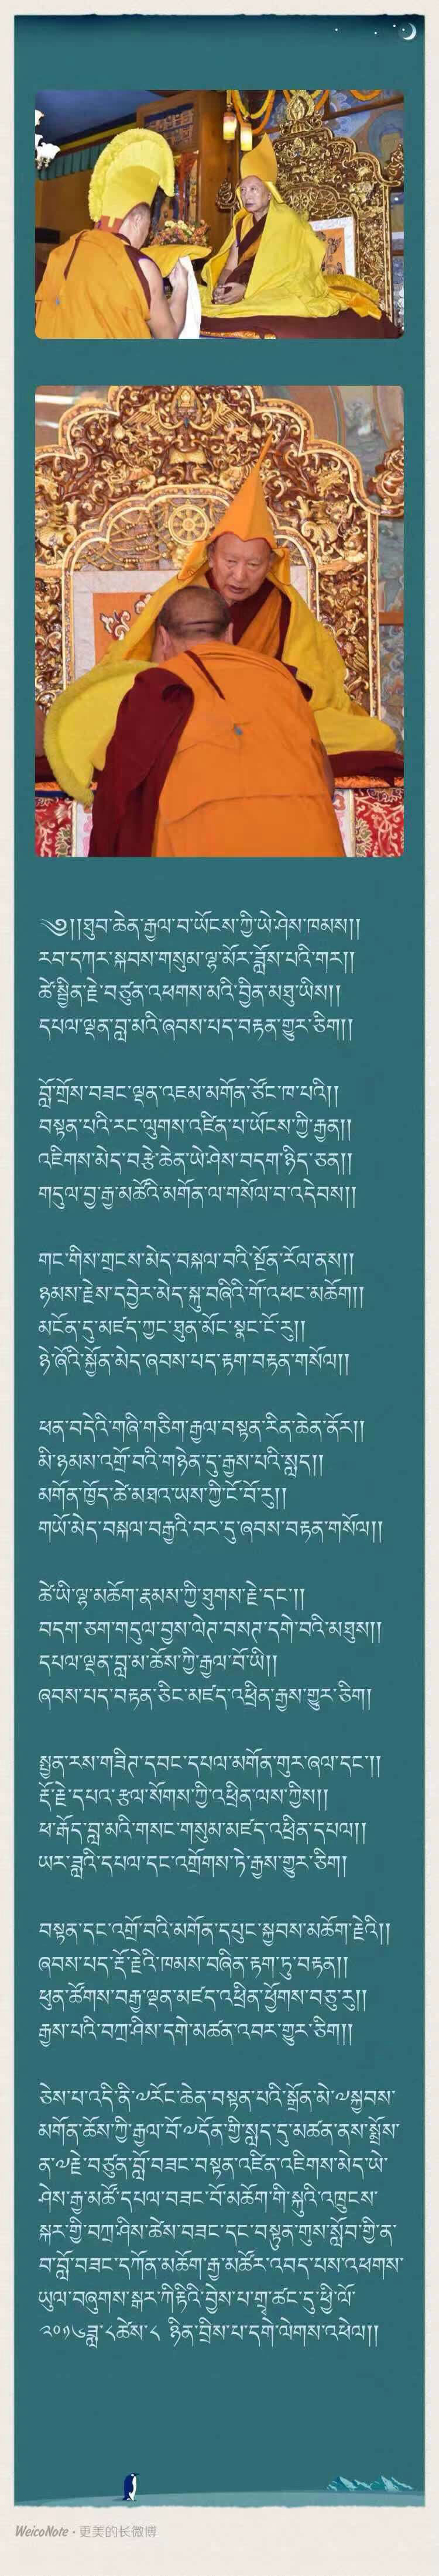 ༄༅།།ཐུབ་ཆེན་རྒྱལ་བ་ཡོངས་ཀྱི་ཡེ་ཤེས་ཁམས།།
རབ་དཀར་སྐབས་གསུམ་ལྷ་མོར་ཟློས་པའི་གར།།
ཚེ་སྦྱིན་རྗེ་བཙུན་འཕགས་མའི་བྱིན་མཐུ་ཡིས།།
དཔལ་ལྡན་བླ་མའི་ཞབས་པད་བརྟན་གྱུར་ཅིག།།
བློ་གྲོས་བཟང་ལྡན་འཇམ་མགོན་ཙོང་ཁ་པའི།།
བསྟན་པའི་རང་ལུགས་འཛིན་པ་ཡོངས་ཀྱི་རྒྱན།།
འཇིགས་མེད་བརྩེ་ཆེན་ཡེ་ཤེས་བདག་ཉིད་ཅན།།
གདུལ་བྱ་རྒྱ་མཚོའི་མགོན་ལ་གསོལ་བ་འདེབས།།
གང་གིས་གྲངས་མེད་བསྐལ་བའི་སྔོན་རོལ་ནས།།
ཉམས་རྗེས་དབྱེར་མེད་སྐུ་བཞིའི་གོ་འཕང་མཆོག།།
མངོན་དུ་མཛད་ཀྱང་ཐུན་མོང་སྣང་ངོ་རུ།།
ཉེ་ཞོའི་སྐྱོན་མེད་ཞབས་པད་རྟག་བརྟན་གསོལ།།
ཕན་བདེའི་གཞི་གཅིག་རྒྱལ་བསྟན་རིན་ཆེན་ནོར།།
མི་ཉམས་འགྲོ་བའི་གཉེན་དུ་རྒྱས་པའི་སླད།།
མགོན་ཁྱོད་ཚེ་མཐའ་ཡས་ཀྱི་ངོ་བོ་རུ།།
གཡོ་མེད་བསྐལ་བརྒྱའི་བར་དུ་ཞབས་བརྟན་གསོལ།།
ཚེ་ཡི་ལྷ་མཆོག་རྣམས་ཀྱི་ཐུགས་རྗེ་དང་།།
བདག་ཅག་གདུལ་བྱས་ལེཊ་བསཊ་དགེ་བའི་མཐུས།།
དཔལ་ལྡན་བླ་མ་ཆོས་ཀྱི་རྒྱལ་བོ་ཡི།།
ཞབས་པད་བརྟན་ཅིང་མཛད་འཕྲིན་རྒྱས་གྱུར་ཅིག།
སྤྱན་རས་གཟིཊ་དབང་དཔལ་མགོན་གུར་ཞལ་དང་།།
རྡོ་རྗེ་དཔའ་རྩལ་སོགས་ཀྱི་འཕྲིན་ལས་ཀྱིས།།
ཕ་རྒོད་བླ་མའི་གསང་གསུམ་མཛད་འཕྲིན་དཔལ།།
ཡར་ཟླའི་དཔལ་དང་འགྲོགས་ཏེ་རྒྱས་གྱུར་ཅིག།
བསྟན་དང་འགྲོ་བའི་མགོན་དཔུང་སྐྱབས་མཆོག་རྗེའི།།
ཞབས་པད་རྡོ་རྗེའི་ཁམས་བཞིན་རྟག་ཏུ་བརྟན།།
ཕུན་ཚོགས་བརྒྱ་ལྡན་མཛད་འཕྲིན་ཕྱོགས་བཅུ་རུ།།
རྒྱས་པའི་བཀྲ་ཤིས་དགེ་མཚན་འབར་གྱུར་ཅིག།།
ཅེས་པ་འདི་ནི་༧རོང་ཆེན་བསྟན་པའི་སྒྲོན་མེ་༧སྐྱབས་
མགོན་ཆོས་ཀྱི་རྒྱལ་བོ་༧དོན་གྱི་སླད་དུ་མཚན་ནས་སྨྲོས་
ན་༧རྗེ་བཙུན་བློ་བཟང་བསྟན་འཛིན་འཇིགས་མེད་ཡེ་
ཤེས་རྒྱ་མཚོ་དཔལ་བཟང་བོ་མཆོག་གི་སྐུའི་འཁྲུངས་
སྐར་གྱི་བཀྲ་ཤིས་ཚེས་བཟང་དང་བསྟུན་གུས་སློབ་གྱི་ན་
བ་བློ་བཟང་དཀོན་མཆོག་རྒྱ་མཚོར་འབད་པས་འཕགས་
ཡུལ་བཞུགས་སྒར་ཀིརྟིའི་བྱེས་པ་གྲྭ་ཚང་དུ་ཕྱི་ལོ་
༢༠༡༦ཟླ་༨ཚེས་༨ ཉིན་བྲིས་པ་དགེ་ལེགས་འཕེལ།།
WeicoNote · 更美的长微博